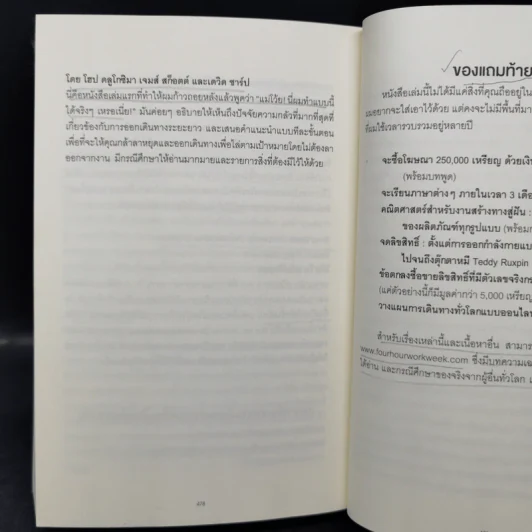 โดย โฮป ดลูโกซิมา เจมส์ สก็อตต์ และเดวิด ชาร์ป
นี่คือหนังสือเล่มแรกที่ทำให้ผมก้าวถอยหลังแล้วพูดว่า "แม่โว้ย! นี่ผมทำแบบนี้
ได้จริงๆ เหรอเนี่ย!" มันค่อยๆ อธิบายให้เห็นถึงปัจจัยความกลัวที่มากที่สุดที่
เกี่ยวข้องกับการออกเดินทางระยะยาว และเสนอคำแนะนำแบบทีละขั้นตอน
เพื่อที่จะให้คุณกล้าลาหยุดและออกเดินทางเพื่อไล่ตามเป้าหมายโดยไม่ต้องลา
ออกจากงาน มีกรณีศึกษาให้อ่านมากมายและรายการสิ่งที่ต้องมีไว้ให้ด้วย
ของแถมท้าย
หนังสือเล่มนี้ไม่ได้มีแค่สิ่งที่คุณถืออยู่ใน
ผมอยากจะใส่เอาไว้ด้วย แต่คงจะไม่มีพื้นที่มา
ที่ผมใช้เวลารวบรวมอยู่หลายปี
จะซื้อโฆษณา 250,000 เหรียญ ด้วยเงิน
(พร้อมบทพูด)
จะเรียนภาษาต่างๆ ภายในเวลา 3 เดือ
คณิตศาสตร์สำหรับงานสร้างทางสู่ฝัน :
ของผลิตภัณฑ์ทุกรูปแบบ (พร้อมก
จดลิขสิทธิ์ : ตั้งแต่การออกกำลังกายแบ
ไปจนถึงตุ๊กตาหมี Teddy Ruxpin
ข้อตกลงซื้อขายลิขสิทธิ์ที่มีตัวเลขจริงกร
(แค่ตัวอย่างนี้ก็มีมูลค่ากว่า 5,000 เหรียญ
วางแผนการเดินทางทั่วโลกแบบออนไลน์
สำหรับเรื่องเหล่านี้และเนื้อหาอื่น สามาร
www.fourhourworkweek.com ซึ่งมีบทความเฉ
ได้อ่าน และกรณีศึกษาของจริงจากผู้อื่นทั่วโลก